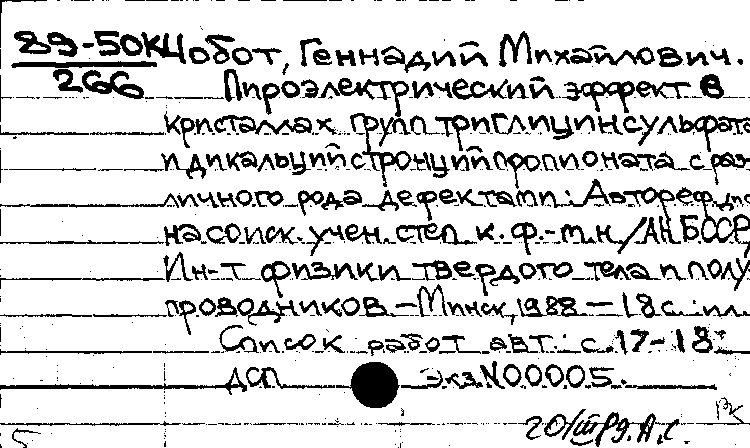 89-50К Чобот, Геннадий Михайлович.
266 Пироэлектрический эффект в
кристаллах групп триглицинсульфата
и дикальцийстронцийпропионата с раз
личного рода дефектами: Автореф. дис
на соиск. учен. степ. к. ф.-м.н./АН БССР,
Ин-т физики твердого тела и полу
проводников – Минск, 1988 – 18 с.: ил.
Список работ авт.: с. 17-18.
ДСП Экз. N 00005.
РК
20/III 89. А.С.